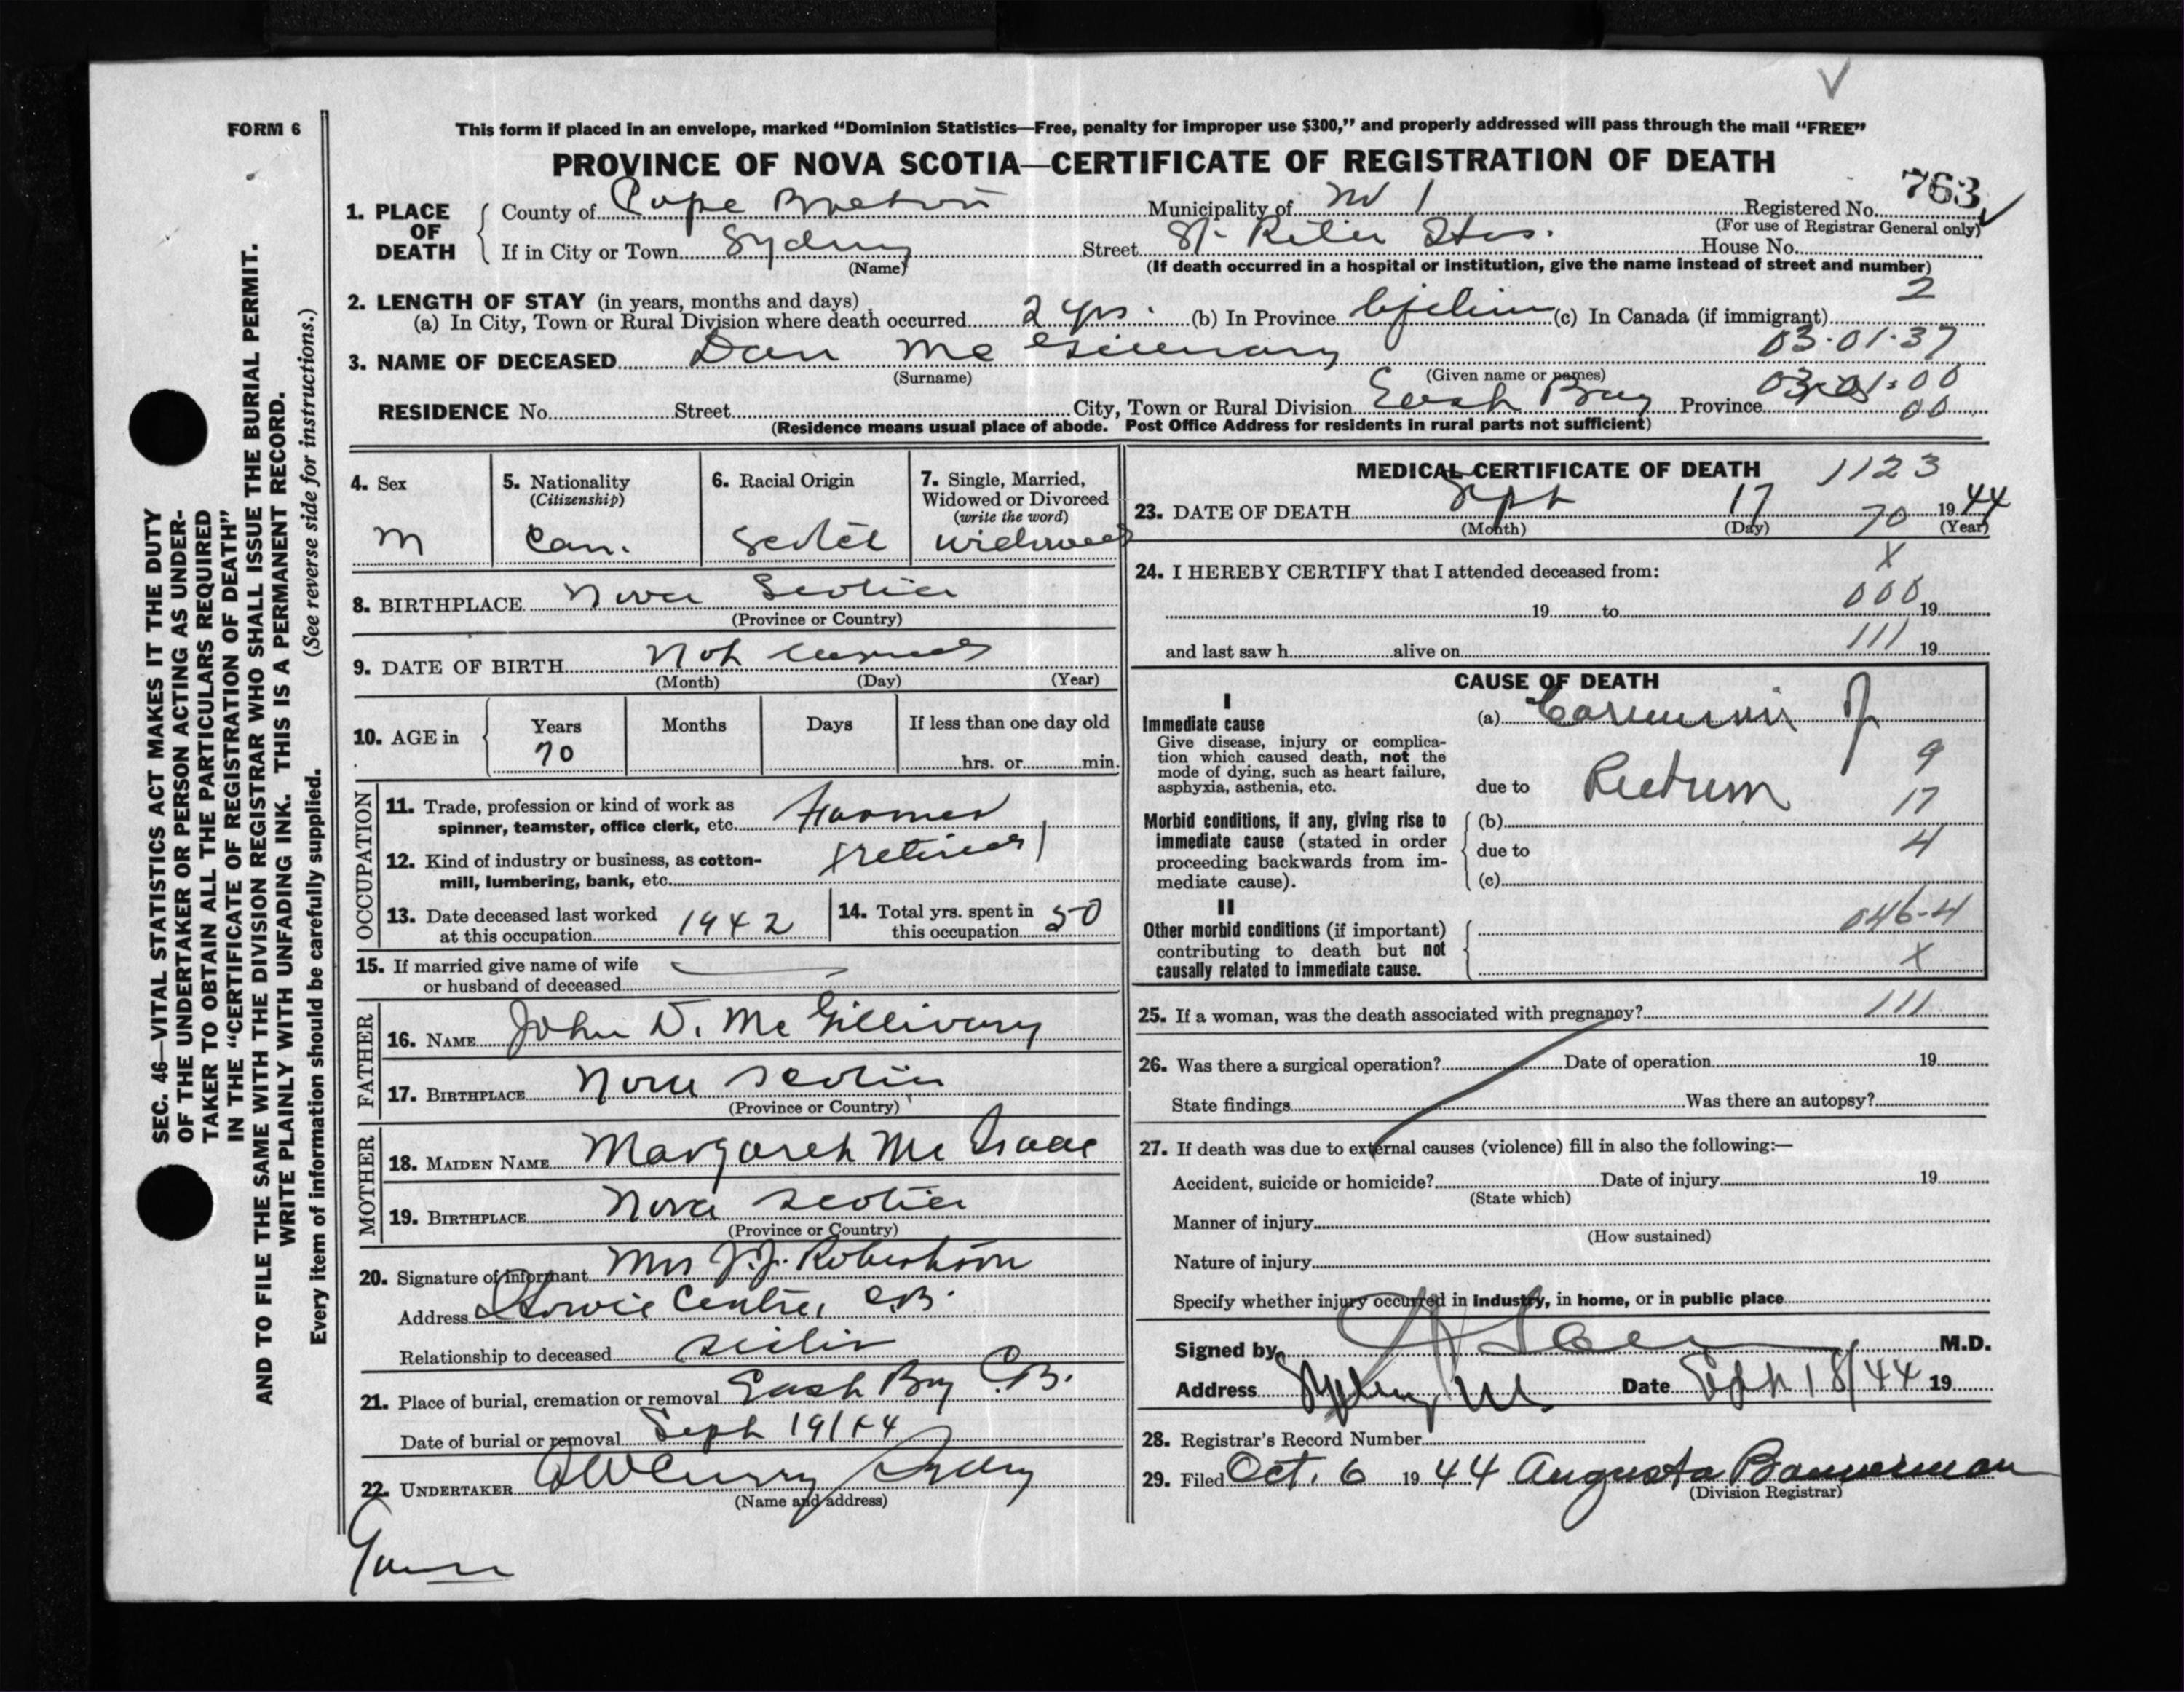 FORM 6
This form if placed in an envelope, marked “Dominion Statistics—Free, penalty for improper use $300,” and properly addressed will pass through the mail “FREE”
PROVINCE OF NOVA SCOTIA—CERTIFICATE OF REGISTRATION OF DEATH
763
1. PLACE OF DEATH
County of Cape Breton Municipality of No 1 Registered No.
(For use of Registrar General only)
If in City or Town Sydney Street St. Rita Hos. House No.
(Name)
(If death occurred in a hospital or institution, give the name instead of street and number)
2. LENGTH OF STAY (in years, months and days)
2
(a) In City, Town or Rural Division where death occurred 2 yrs. (b) In Province (c) In Canada (if immigrant)
3. NAME OF DECEASED Dan Mc 03.01.37
(Surname) (Given name or names)
RESIDENCE No. Street City, Town or Rural Division East Bay Province 00
(Residence means usual place of abode. Post Office Address for residents in rural parts not sufficient)
4. Sex
M
5. Nationality
(Citizenship)
Can.
6. Racial Origin
Scotch
7. Single, Married, Widowed or Divorced
(write the word)
Widowed
8. BIRTHPLACE Nova Scotia
(Province or Country)
9. DATE OF BIRTH Not
(Month) (Day) (Year)
10. AGE in Years Months Days If less than one day old
70 hrs. or min.
OCCUPATION
11. Trade, profession or kind of work as
spinner, teamster, office clerk, etc. Farmer
12. Kind of industry or business, as cotton-
mill, lumbering, bank, etc. (retired)
13. Date deceased last worked
at this occupation 1942
14. Total yrs. spent in
this occupation 50
15. If married give name of wife
or husband of deceased
FATHER
16. NAME John D. Mc Gillivary
17. BIRTHPLACE Nova Scotia
(Province or Country)
MOTHER
18. MAIDEN NAME Margaret Mc Isaac
19. BIRTHPLACE Nova Scotia
(Province or Country)
20. Signature of Informant Mrs J.J. Robertson
Address Howie Centre, C.B.
Relationship to deceased sister
21. Place of burial, cremation or removal East Bay C.B.
Date of burial or removal Sept 19/44
22. UNDERTAKER Curry Sydney
(Name and address)
MEDICAL CERTIFICATE OF DEATH 1123
23. DATE OF DEATH Sept 17 70 1944
(Month) (Day) (Year)
24. I HEREBY CERTIFY that I attended deceased from: X
19 to 000 19
and last saw h alive on 111 19
CAUSE OF DEATH
I
Immediate cause
Give disease, injury or complica-
tion which caused death, not the
mode of dying, such as heart failure,
asphyxia, asthenia, etc.
(a) Carcinoma of
9
due to Rectum
17
Morbid conditions, if any, giving rise to
immediate cause (stated in order
proceeding backwards from im-
mediate cause).
(b)
due to 4
(c)
II
Other morbid conditions (if important)
contributing to death but not
causally related to immediate cause.
046-4
X
25. If a woman, was the death associated with pregnancy? 111
26. Was there a surgical operation? Date of operation 19
State findings Was there an autopsy?
27. If death was due to external causes (violence) fill in also the following:—
Accident, suicide or homicide? Date of injury 19
(State which)
Manner of injury
(How sustained)
Nature of injury
Specify whether injury occurred in industry, in home, or in public place
Signed by M.D.
Address Sydney, N.S. Date Sept 18/44 19
28. Registrar's Record Number
29. Filed Oct. 6 1944 Augusta Bannerman
(Division Registrar)
SEC. 46—VITAL STATISTICS ACT MAKES IT THE DUTY
OF THE UNDERTAKER OR PERSON ACTING AS UNDER-
TAKER TO OBTAIN ALL THE PARTICULARS REQUIRED
IN THE “CERTIFICATE OF REGISTRATION OF DEATH”
AND TO FILE THE SAME WITH THE DIVISION REGISTRAR WHO SHALL ISSUE THE BURIAL PERMIT.
WRITE PLAINLY WITH UNFADING INK. THIS IS A PERMANENT RECORD.
Every item of information should be carefully supplied. (See reverse side for instructions.)